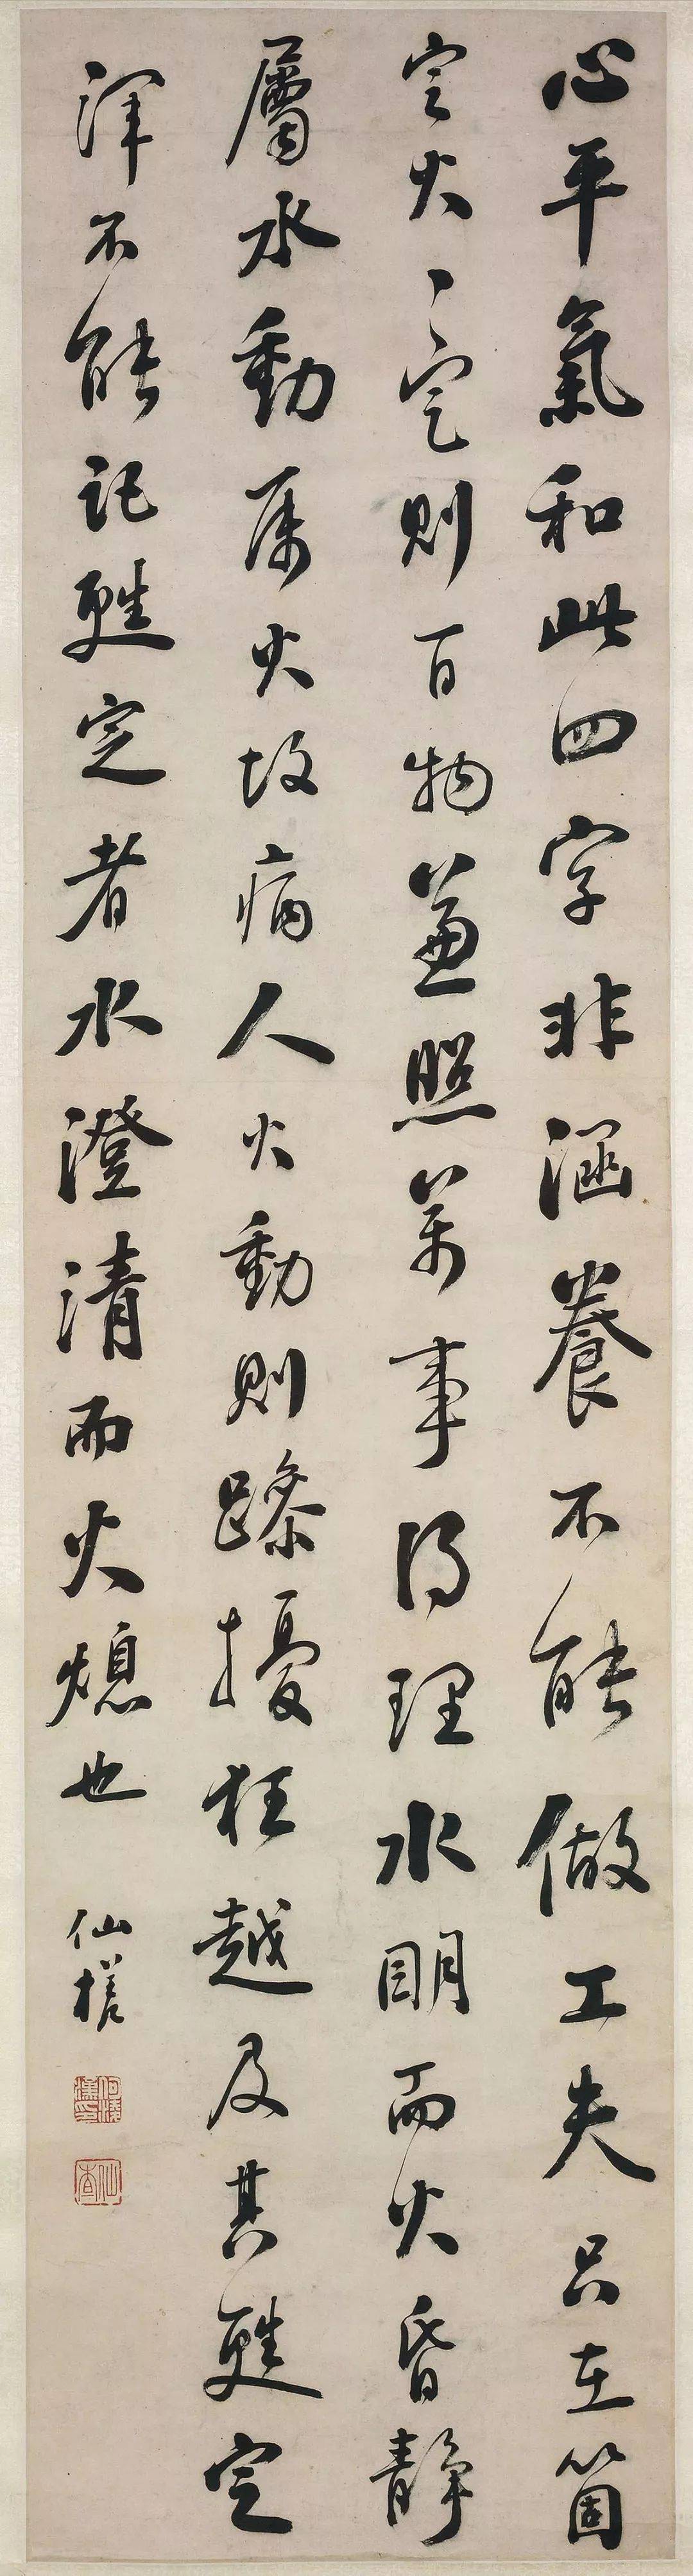 心平氣和此四字非涵養不能做工夫只在箇
定火〻定則百物兼照萬事得理水明而火昏靜
屬水動屬火故病人火動則躁擾狂越及其甦定
渾不能記甦定者水澄清而火熄也
仙槎